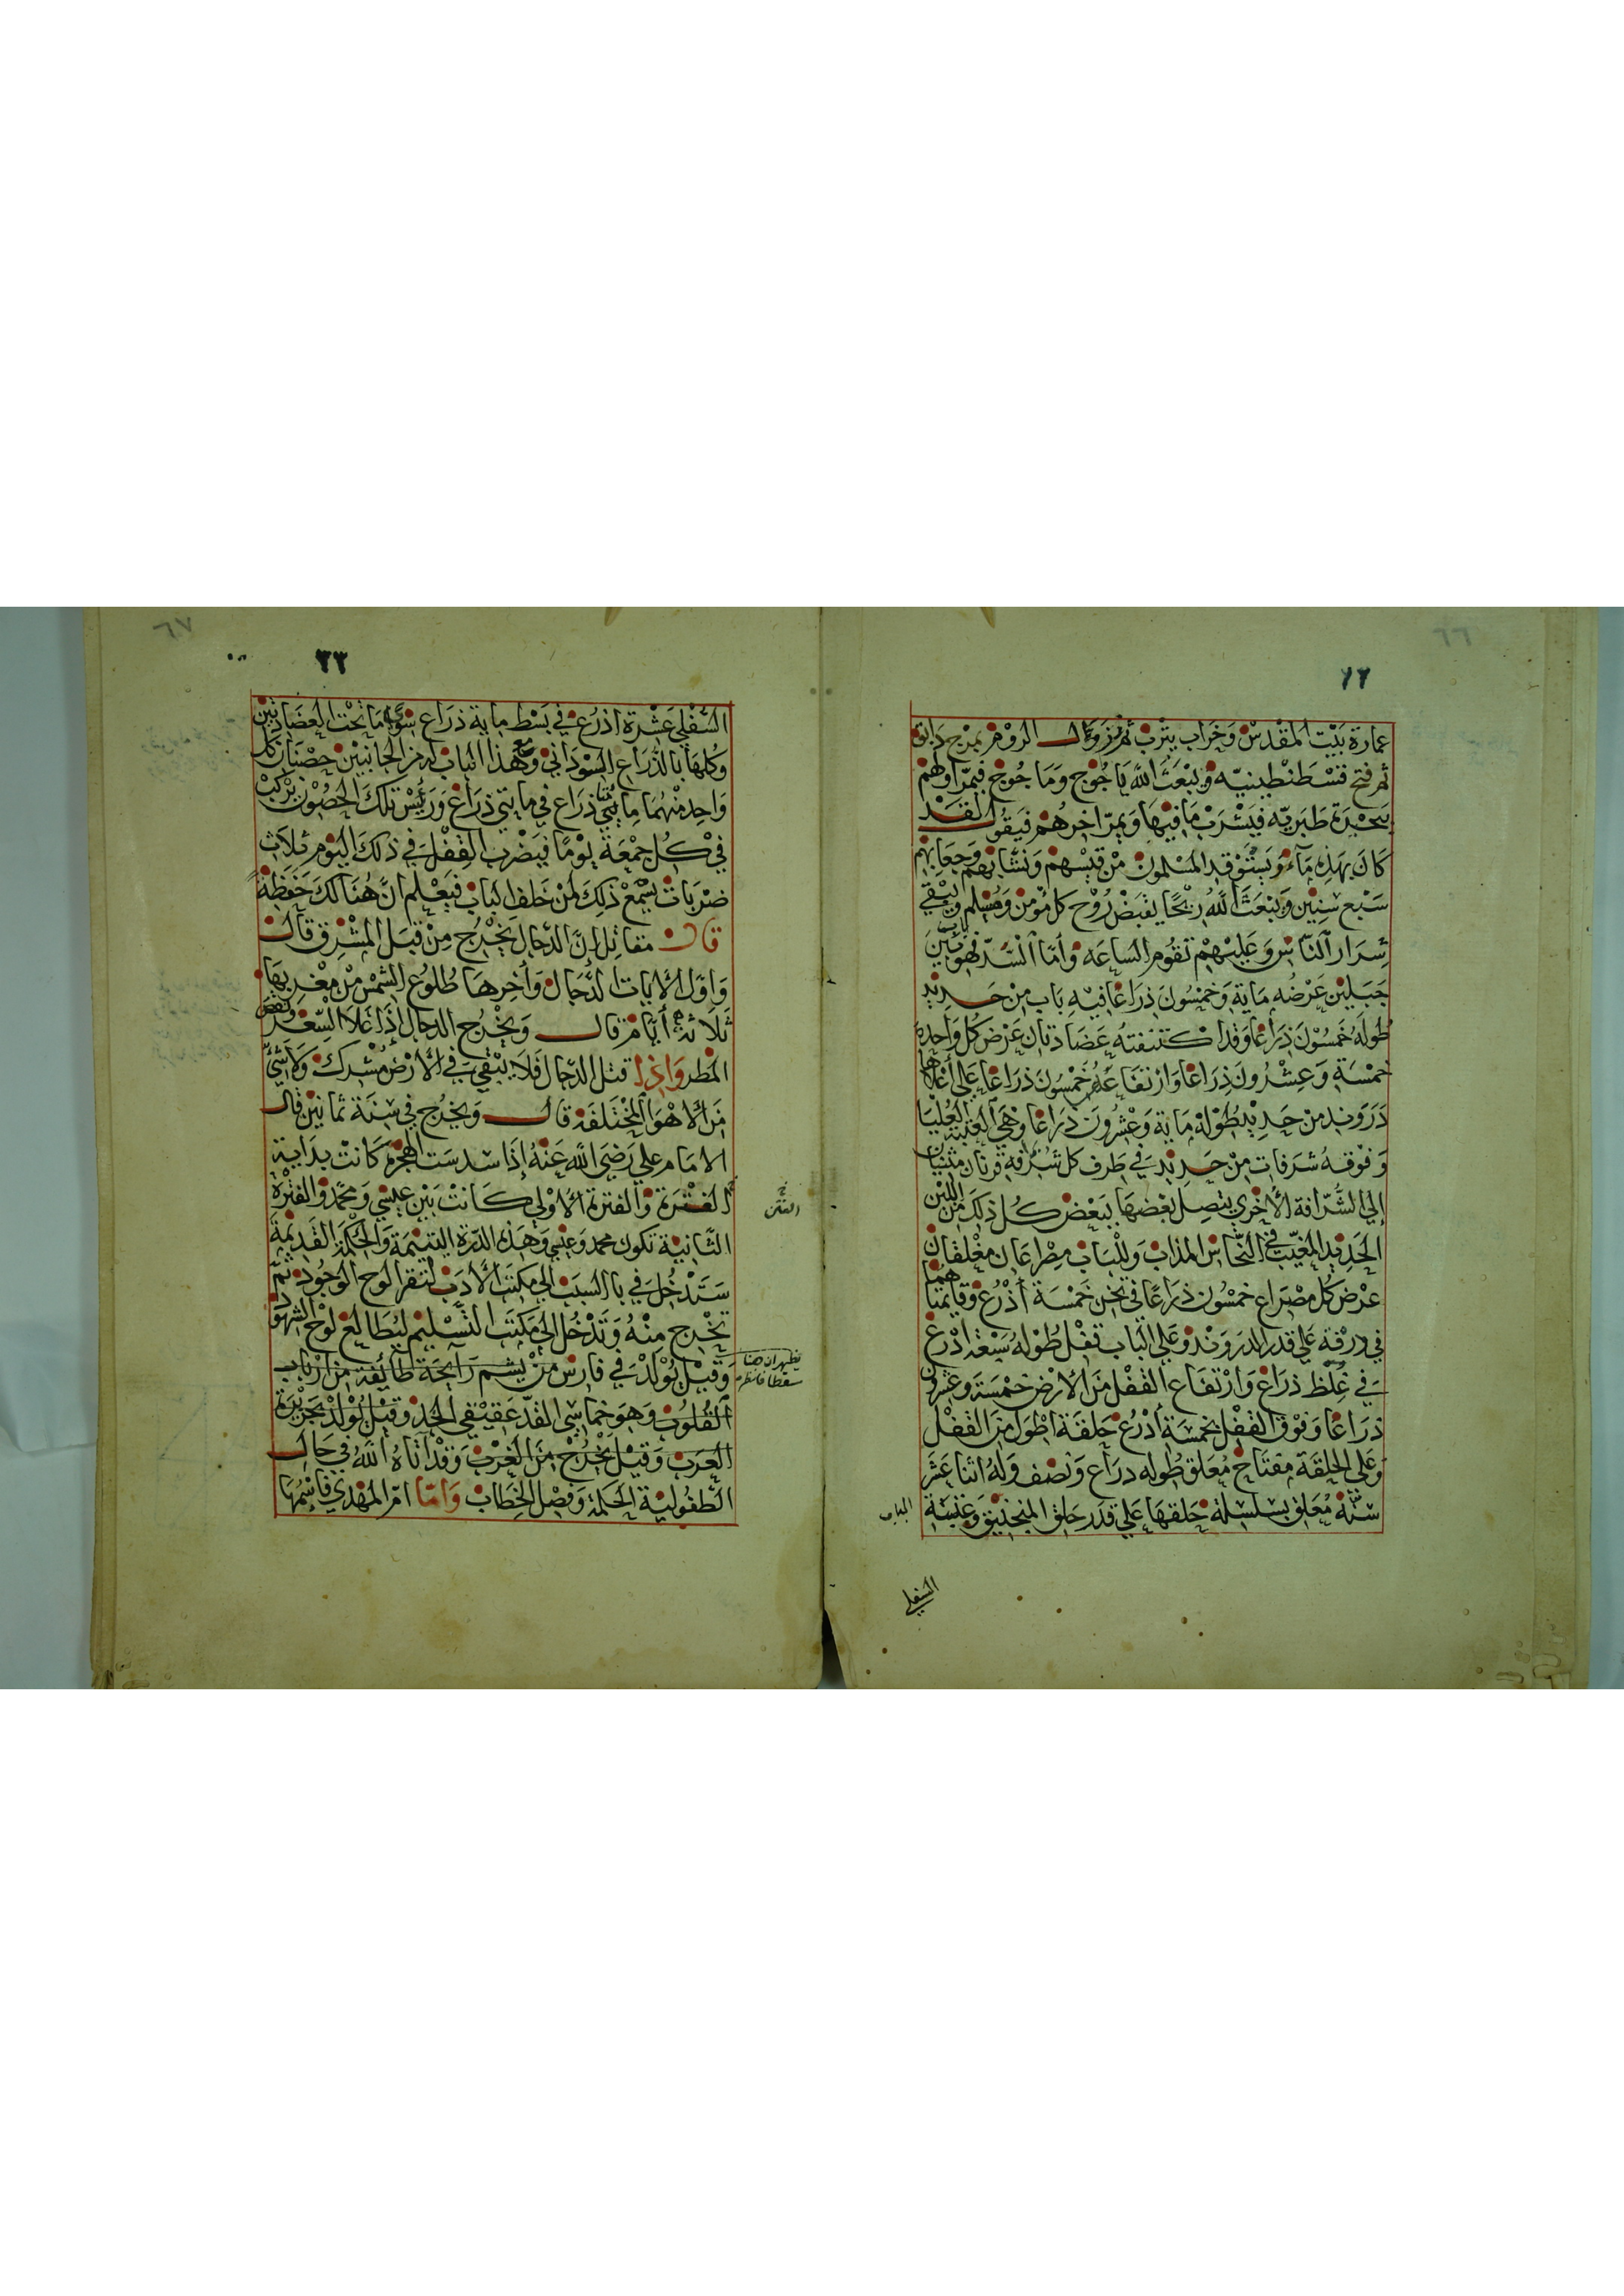 ٦٦
١٢
عمارة بَيْت المقْدسْ وَخَراب يثرب ثم نزوَال الروْم بمرْج دَابق
ثم فتح قسْطنْطينيّه وَيبْعَث اللّه يَاجُوج وَمَاجُوج فيمرّ اولهمْ
ببحْيرَة طبَريّه فيَشْرَبْ مَا فيْهَا وَيمرّ اخرهُمْ فيَقُول لقَدْ
كَانَ بهَذِه مَآءٌ وَيسْتَوْقد المسْلمون منْ قسِيّهمْ وَنشّابهمْ وَجعَابهم
سَبْع سنِيْن وَيَبْعَث اللّهُ ريْحًا يقبَضْ رُوْح كل مؤمن وَمُسْلم وَيبْقي
شِرَار النّاسْ وَعَليْهمْ تقوُم السَاعَه وَأمّا السَّدّ فهوَ بَيْنَ
جَبَليْن عَرْضُه مَاية وَخمْسُونَ ذِرَاعًا فيْهِ بَاب مِنْ حَدِيْد
طُولهُ خمسُوْنَ ذِرَاعًا وَقد اكتنفتهُ عَضَادتان عَرْض كل وَاحِدة
خمْسَة وَعِشْرُونَ ذِرَاعًا وَارْتفَاعَهُ خَمْسُونَ ذِرَاعًا عَلي أعْلاهَا
دَرَوند من حَدِيْد طُوْلهُ مَاية وَعشْرُونَ ذِرَاعًا وَهيَ العَتبة العُليَا
وَفوْقهُ شرَفات مِنْ حَدِيْد في طَرف كل شُرّافة قرنان مثنيان
إلي الشُّرّافة الأخْري يتصِل بَعْضهَا ببَعْض كُل ذلكَ مِنَ اللبن
الحَدِيد المغيّب في النّحَاسْ المذَاب وَللْبَاب مِصْراعَان مغْلقان
عرْض كل مصْرَاع خمْسُون ذِرَاعًا في ثخن خَمْسَة أذْرُعْ وَقايمتاهُما
في درْقة عَلي قدر الدرَوَنْد وَعَلي البَاب قفْل طُوْلهُ سَبْعَة اذْرع
في غلظ ذرَاعْ وَارْتفَاع القفْل منَ الأرضْ خمْسَة وعشْرون
ذرَاعًا وَفوْق القفْل بخمْسَة أذْرُعْ حَلقة اطْول منَ القفْل
وَعَلي الحلقة مِفتَاح مُعَلق طُوله درَاع وَنصْف وَلهُ اثنا عَشَر
سنّة مُعَلق بسلسِلة حَلقهَا عَلي قدَر حَلق المنجَنيْق وَعَتبَة
الباب
السفلي
٦٧
٣٣
السّفْلي عَشْرة أذْرُعْ في بَسْط ماية ذرَاع سِوَي مَا تحْت العضَادتيْن
وَكلهَا بالذرَاع السّوْدَاني وَمع هَذَا البَاب له من الجَانبيْن حصْنَان كل
وَاحِد منْهُمَا مِائتي ذرَاع في مَايتيْ ذرَاعْ وَرَئيْس تلكَ الحصُوْن يرْكبْ
في كل جمْعَة يوْمًا فيَضْرب القفل في ذلكَ اليَوْم ثلاَث
ضرَبات يسْمَعْ ذلكَ منْ خَلف البَاب فيَعْلم انّ هُنَالكَ حَفَظة
قال مقاتل إنّ الدّجال يَخْرُج مِنْ قبَل المشْرق قال
وَاوّل الأيات الدّجَال وَأخِرهَا طُلوُع الشّمْس منْ مغْربهَا
ثَلاثة أيّام قال وَيخْرُج الدجال إذَا غلاَ السّعْر وَنقصَ
المطر وَاذَا قتل الدّجّال فَلا يبْقي في الأرْض مُشْرك وَلاَ شيْ
مَن الأهْوَا المخْتلفَة قال وَيخرُج في سَنة ثمانيْن قال
الامَام علي رَضيَ اللّه عَنْهُ إذَا سدست الهجْرة كَانتْ بدَاية
الفتْرة وَالفترة الأوْلي كَانتْ بَيْن عيسْي وَمحَمّد وَالفتْرَة
الثّانية تكوُن محمد وَعيْسي وَهذه الدّرَة اليتيْمَة وَالحكمَة القَديمَة
سَتدْخُل في باالسبَب الي مكتَب الأدَب لتقرَا لوح الوجُود ثمّ
تخْرج منْهُ وَتَدْخُل الي مَكتَب التسْليم ليُطَالع لوْح الشهوْد
وَقيْل يُوْلدْ في فارسْ منْ يشم رَايحَة طائفة مِنْ ارْبَاب
القُلوُبْ وَهوَ خمَاسِي القدّ عَقيْقي الخد وَقيْل يُولدْ بجَزيْرَة
العرَب وَقيْل يخْرُج منَ الغَرْب وَقدْ آتاهُ اللّهُ في حَال
الطّفُوليَة الحَكمَة وَفصْل الخطَاب وَامّا امْر المهْدي فاسْمُهَا
خ
الفتن
يظهر ان هنا
سقطا فانظره